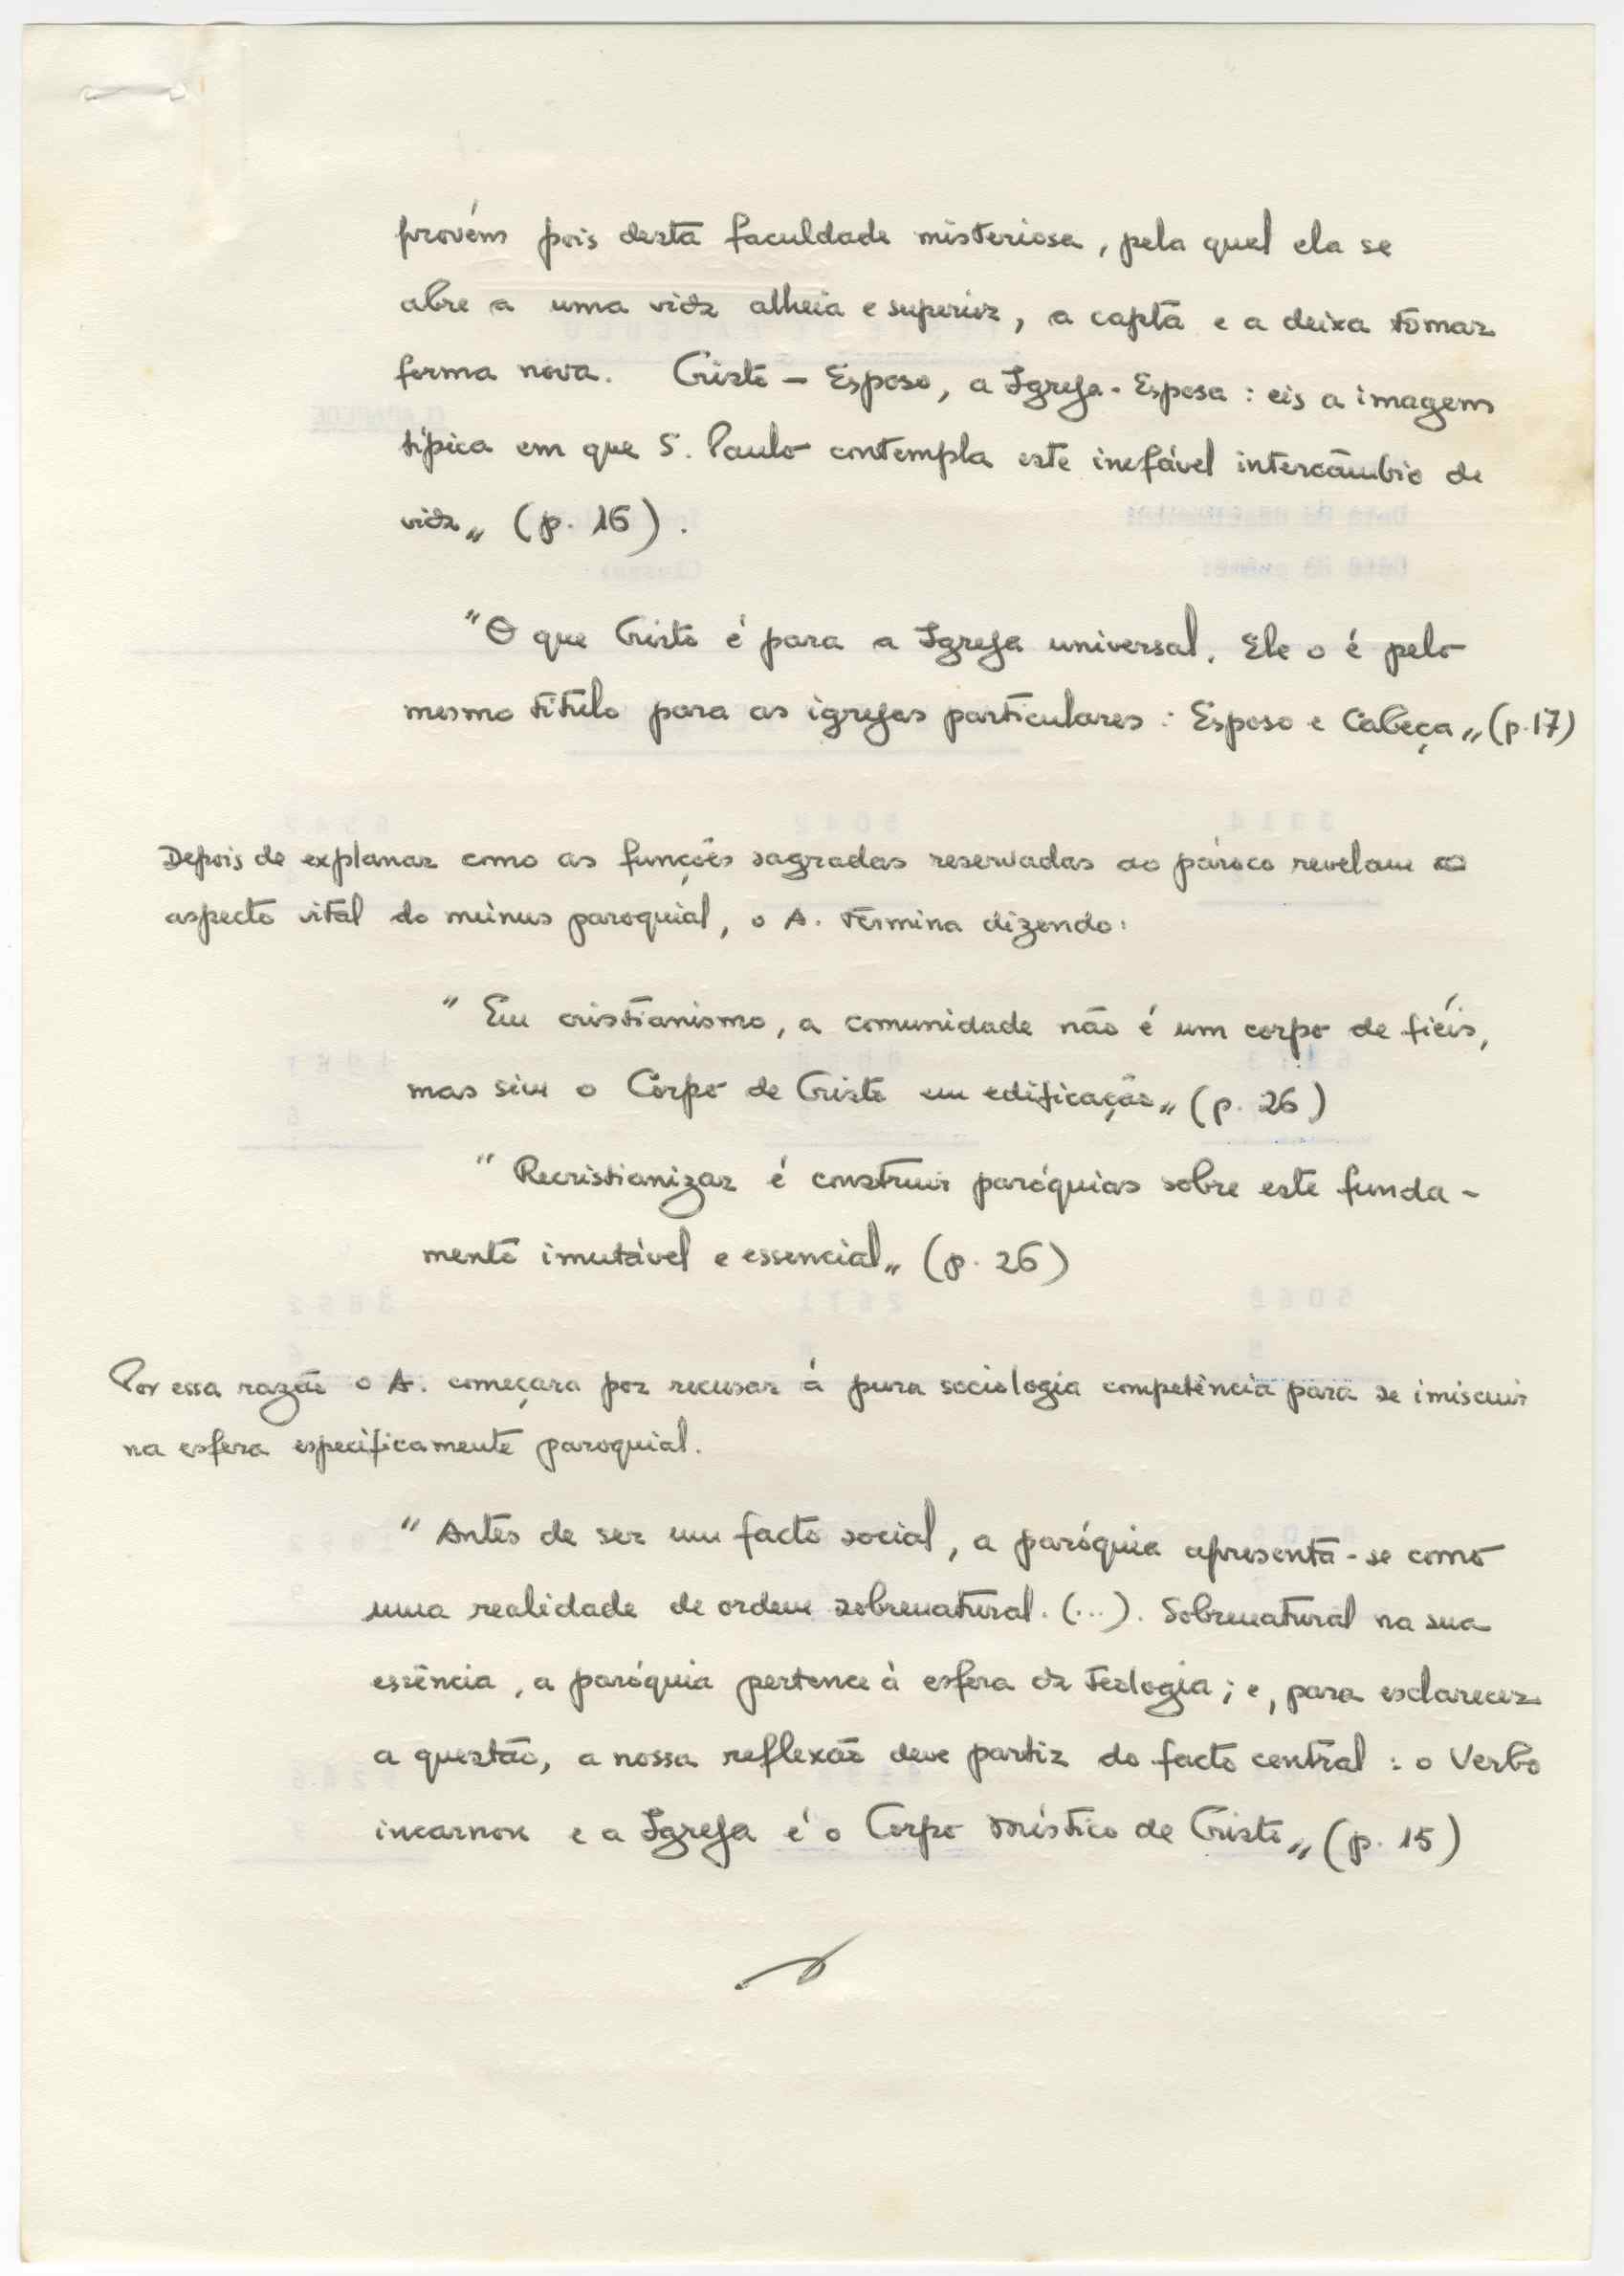 provém pois desta faculdade misteriosa, pela qual ela se
abre a uma vida alheia e superior, a capta e a deixa tomar
forma nova. Cristo - Esposo, a Igreja - Esposa : eis a imagem
típica em que S. Paulo contempla este inefável intercâmbio de
vida„ (p. 16).
"O que Cristo é para a Igreja universal, Ele o é pelo
mesmo título para as igrejas particulares : Esposo e Cabeça„ (p. 17)
Depois de explanar como as funções sagradas reservadas ao pároco revelam o
aspecto vital do múnus paroquial, o A. termina dizendo:
" Em cristianismo, a comunidade não é um corpo de fiéis,
mas sim o Corpo de Cristo em edificação„ (p. 26)
" Recristianizar é construir paróquias sobre este funda -
mento imutável e essencial„ (p. 26)
Por essa razão o A. começara por recusar á pura sociologia competência para se imiscuir
na esfera especificamente paroquial.
" Antes de ser um facto social, a paróquia apresenta-se como
uma realidade de ordem sobrenatural. (...). Sobrenatural na sua
essência, a paróquia pertence à esfera da Teologia; e, para esclarecer
a questão, a nossa reflexão deve partir do facto central : o Verbo
incarnou e a Igreja é o Corpo místico de Cristo„ (p. 15)